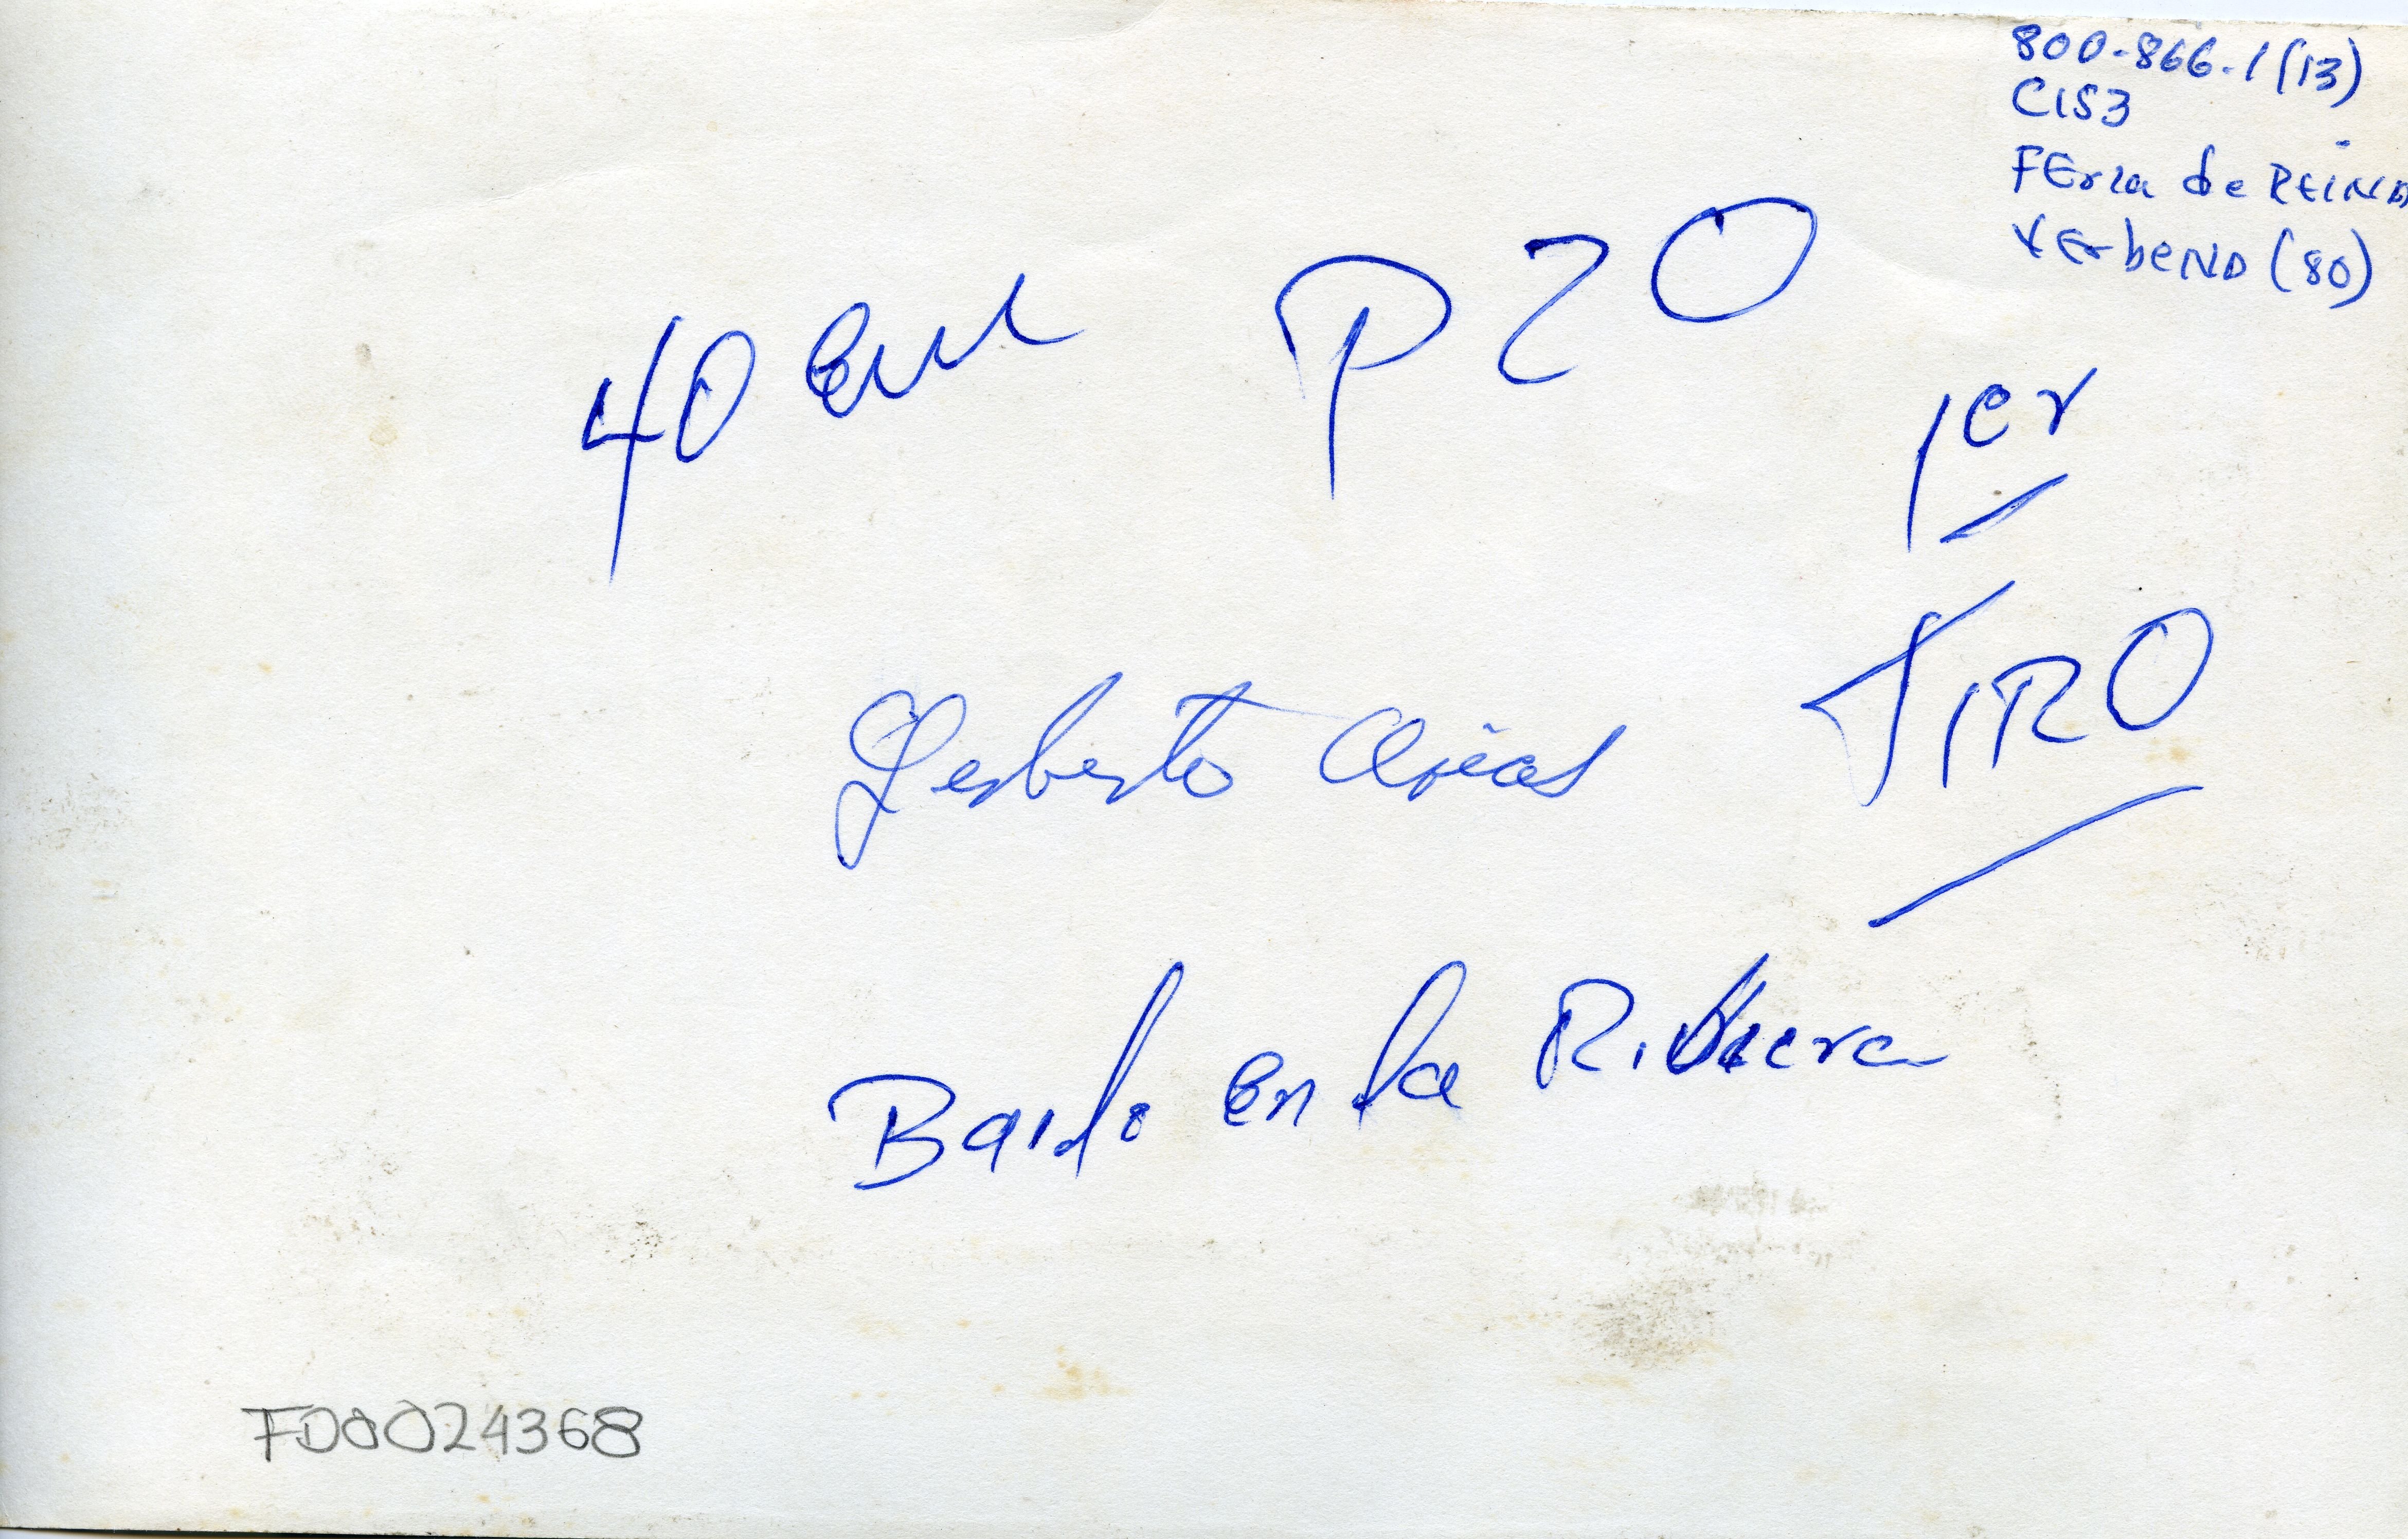 800-866.1(13)
C1S3
FEria de REINA
VErbeNA (80)
40 em P20
1er
TIRO
Gerberto Arias
Baile en la Riviera
FD0024368